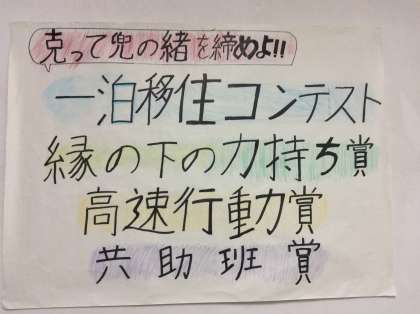 克って兜の緒を締めよ!!
一泊移住コンテスト
縁の下の力持ち賞
高速行動賞
共助班賞